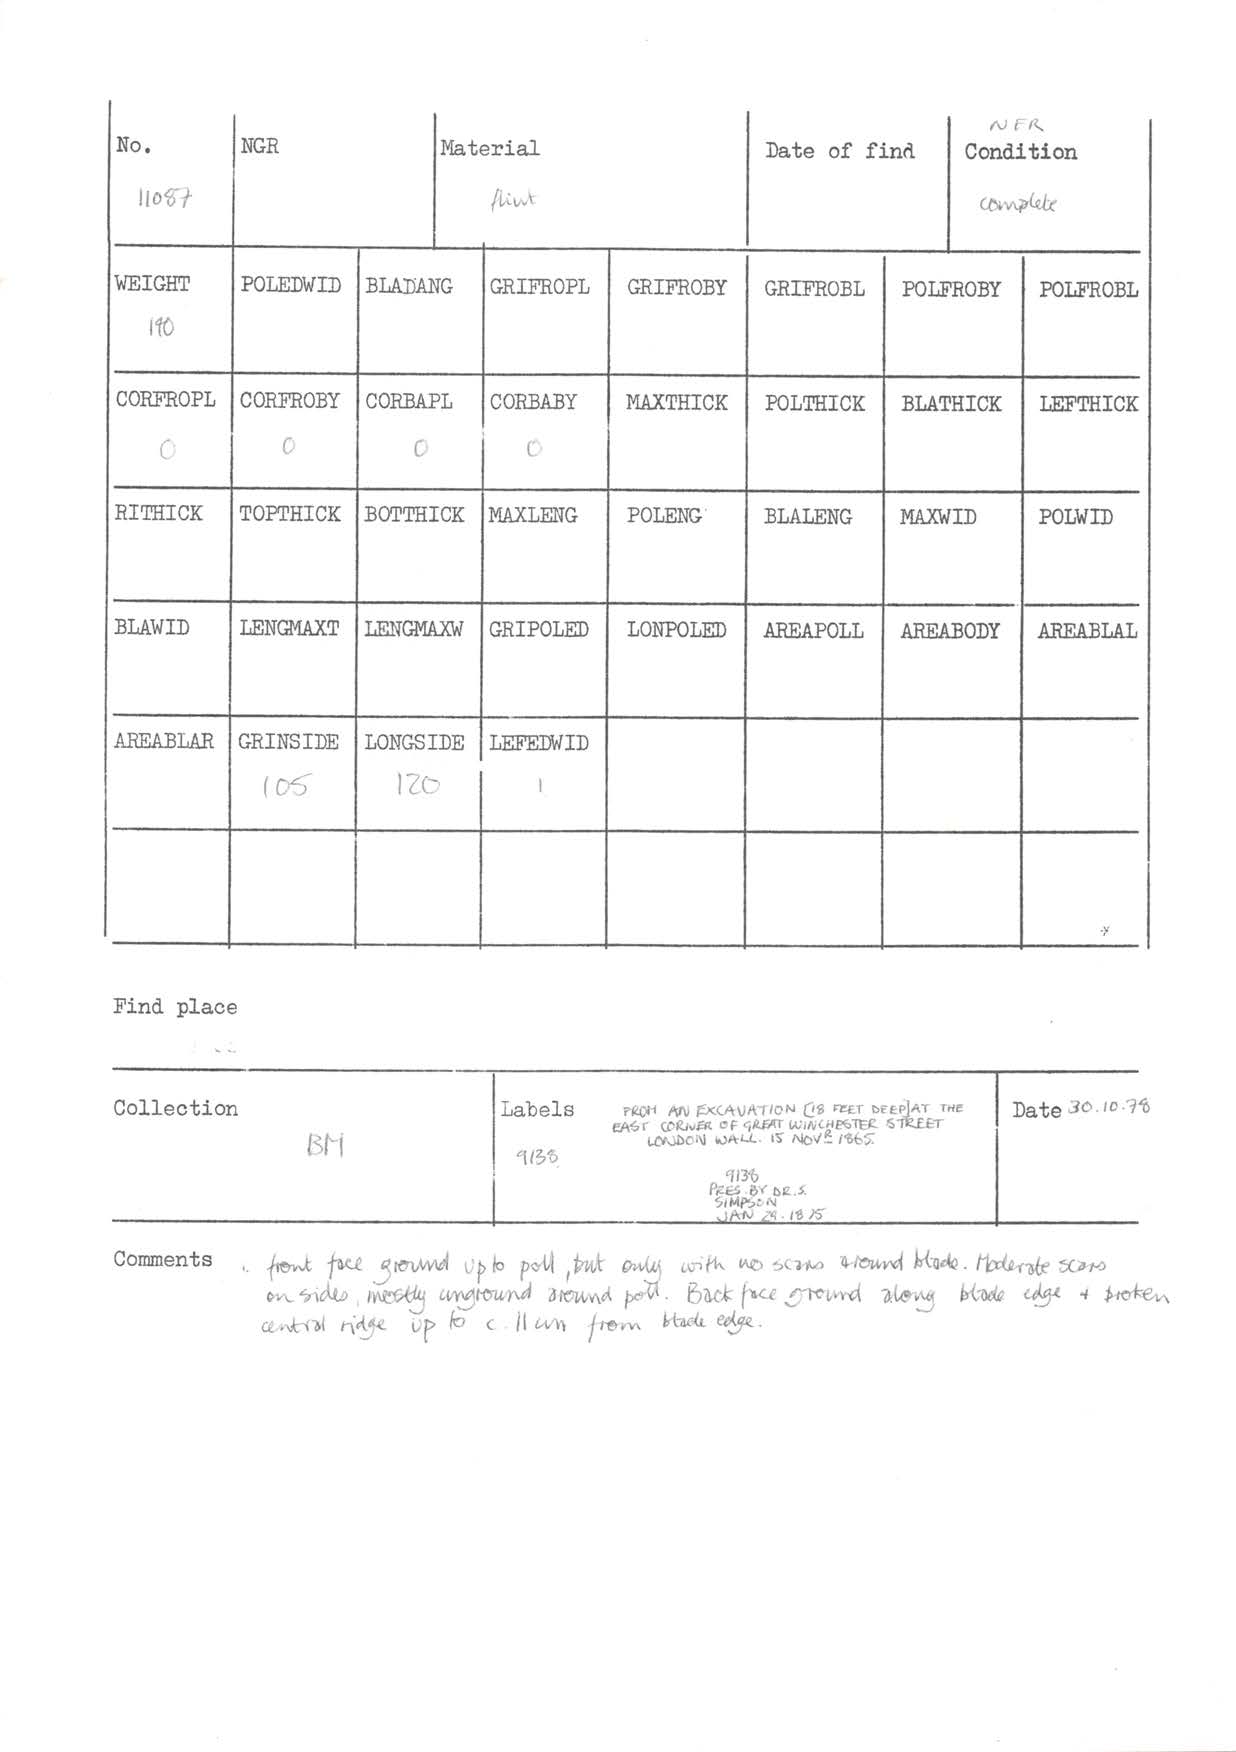 NFR
No. NGR Material Date of find Condition
11087 flint complete
WEIGHT POLEDWID BLADANG GRIFROPL GRIFROBY GRIFROBL POLFROBY POLFROBL
190
CORFROPL CORFROBY CORBAPL CORBABY MAXTHICK POLTHICK BLATHICK LEFTHICK
0 0 0 0
RITHICK TOPTHICK BOTTHICK MAXLENG POLENG BLALENG MAXWID POLWID
BLAWID LENGMAXT LENGMAXW GRIPOLED LONPOLED AREAPOLL AREABODY AREABLAL
AREABLAR GRINSIDE LONGSIDE LEFEDWID
105 120 1
Find place
Collection
BM
Labels
9138
FROM AN EXCAVATION [18 FEET DEEP] AT THE
EAST CORNER OF GREAT WINCHESTER STREET
LONDON WALL. 15 NOVR 1865.
9138
PRES. BY DR. S.
SIMPSON
JAN 29. 1875
Date 30.10.78
Comments front face ground up to poll, but only with no scars around blade. Moderate scars
on sides, mostly unground around poll. Back face ground along blade edge + broken
central ridge up to c. 11 cm from blade edge.